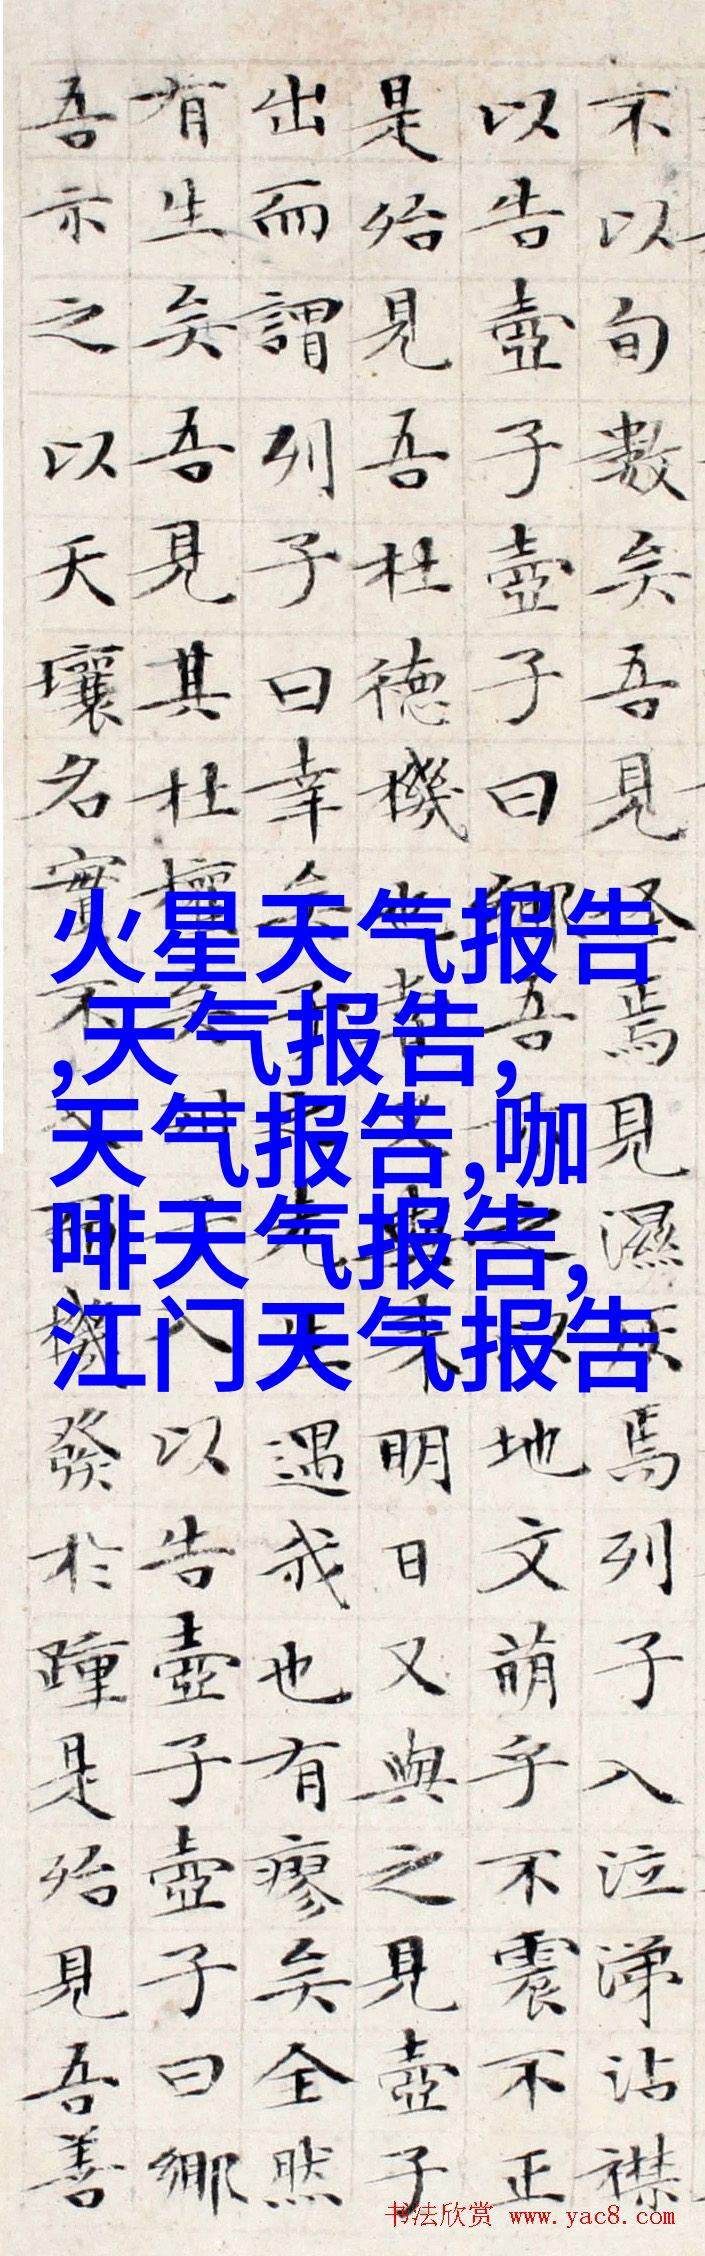 不以旬數矣吾見怪焉見濕灰焉列子入泣涕沾襟
以告壺子壺子曰鄉吾示之以地文萌乎不震不正
是殆見吾杜德機也嘗又與來明日又與之見壺子
出而謂列子曰幸矣子之先生遇我也有瘳矣全然
有生矣吾見其杜權矣列子入以告壺子壺子曰鄉
吾示之以天壤名實不入而機發於踵是殆見吾善
火星天气报告
,天气报告,
天气报告,咖
啡天气报告,
江门天气报告
书法欣赏 www.yac8.com